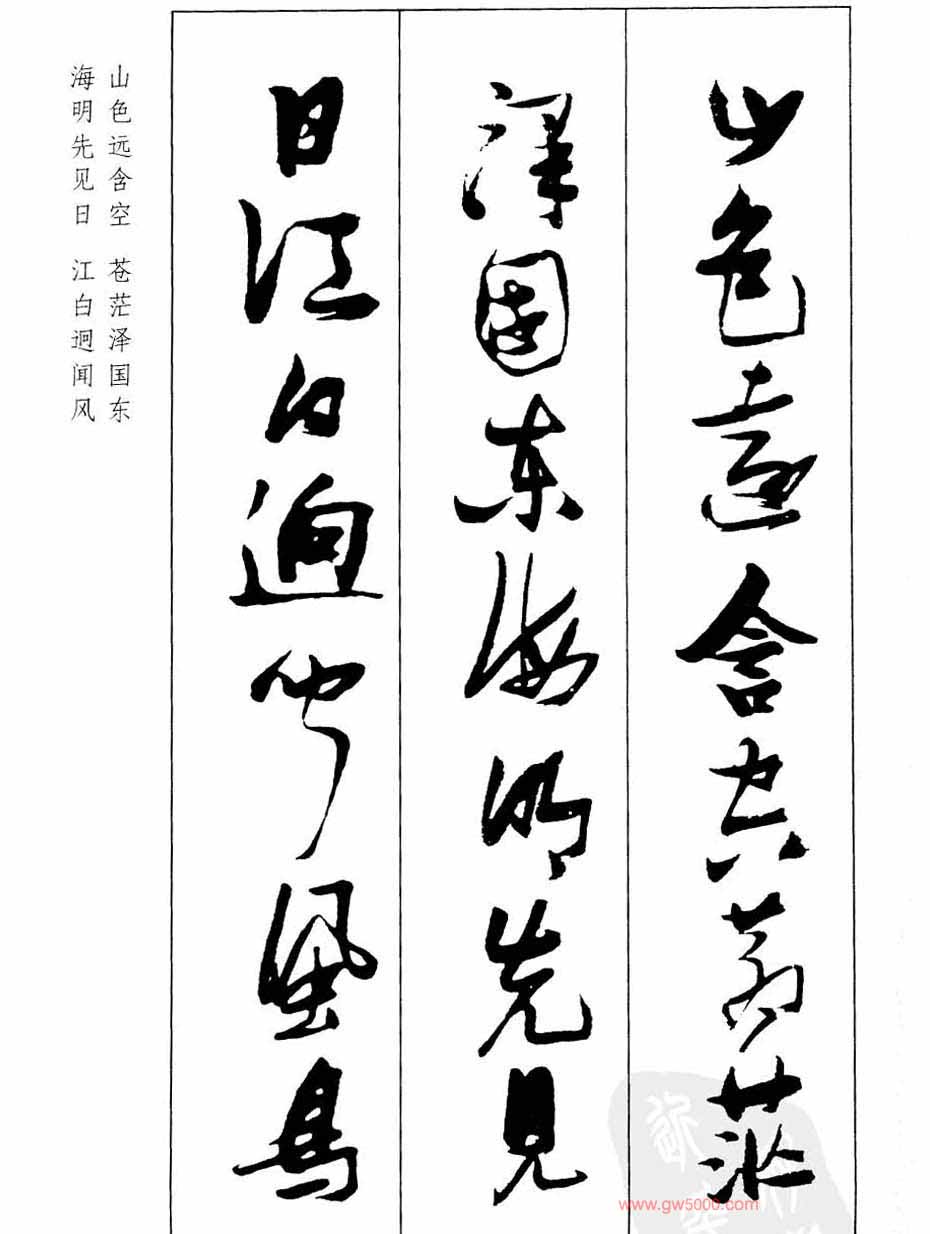 山色遠含空蒼茫
澤國東海明先見
日江白迥聞風鳥
山色远含空 苍茫泽国东
海明先见日 江白迥闻风
www.gw5000.com